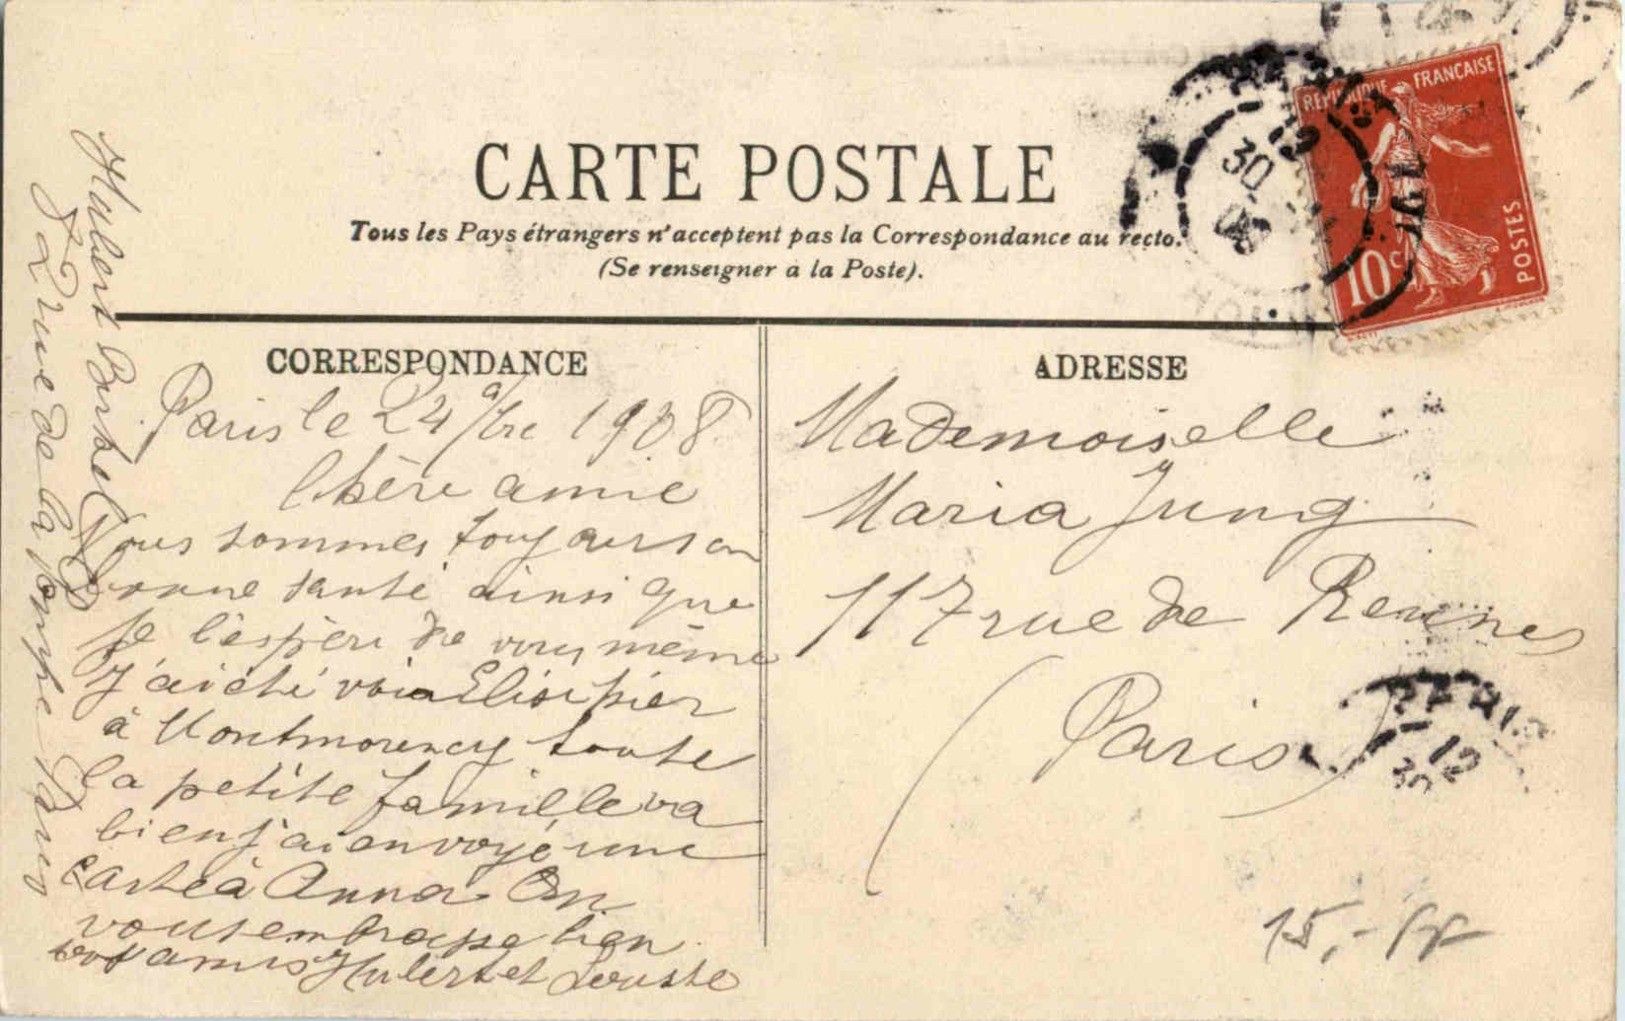 CARTE POSTALE
Tous les Pays étrangers n'acceptent pas la Correspondance au recto.
(Se renseigner à la Poste).
RÉPUBLIQUE FRANÇAISE
10 c
POSTES
12
30
CORRESPONDANCE
Paris le 24 1908
Chère amie
Nous sommes toujours en
bonne santé ainsi que
je l'éspère de vous même
J'ai été voir Elise hier
à Montmorency toute
la petite famille va
bien j'ai envoyé une
carte à Anna On
vous embrasse bien
vos amis Hubert et
Hubert
rue de la pompe Paris
ADRESSE
Mademoiselle
Maria Jung
117 rue de Rennes
(Paris)
PARIS
12
30
15,-